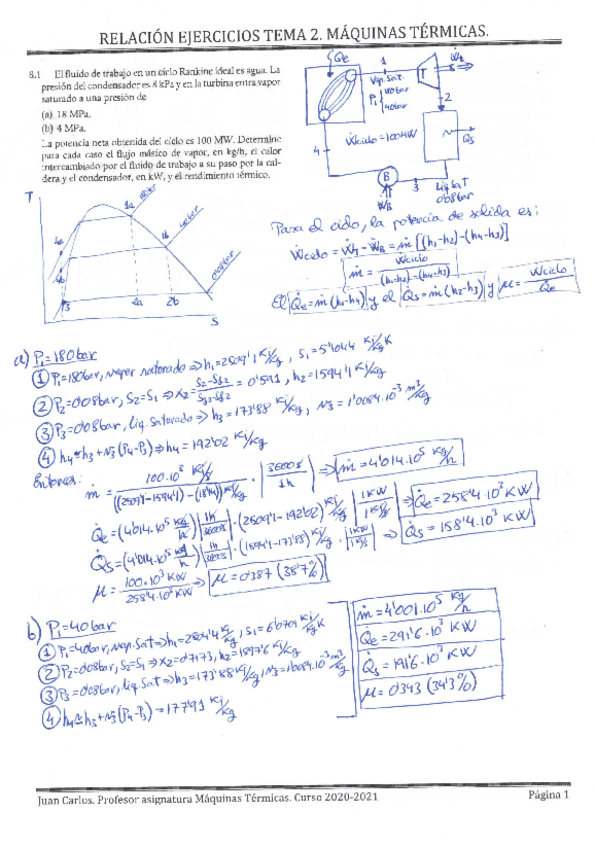 RELACIÓN EJERCICIOS TEMA 2. MÁQUINAS TÉRMICAS.
8.1 El fluido de trabajo en un ciclo Rankine ideal es agua. La
presión del condensador es 8 kPa y en la turbina entra vapor
saturado a una presión de
(a) 18 MPa.
(b) 4 MPa.
La potencia neta obtenida del ciclo es 100 MW. Determine
para cada caso el flujo másico de vapor, en kg/h, el calor
intercambiado por el fluido de trabajo a su paso por la cal-
dera y el condensador, en kW, y el rendimiento térmico.
Q̇e
1
Vap. Sat.
P1 { 180bar
40bar
T
2
Ẇciclo = 100MW
Q̇s
4
B
ẆB
3
Liq Sat
0'08bar
T
1a
180bar
1b
40bar
0'08bar
4a
4b
P3
2a
2b
S
Para el ciclo, la potencia de salida es:
Ẇciclo = Ẇt - ẆB = ṁ [(h1-h2)-(h4-h3)]
ṁ = Ẇciclo / (h1-h2)-(h4-h3)
El Q̇e = ṁ(h1-h4) y el Q̇s = ṁ(h2-h3) y μ = Ẇciclo / Q̇e
a) P1=180bar
① P1=180bar, vapor saturado ⇒ h1=2509'1 KJ/Kg, S1=5'1044 KJ/KgK
② P2=0'08bar, S2=S1 ⇒ X2= S2-Sf2 / Sg2-Sf2 = 0'591, h2=1594'1 KJ/Kg
③ P3=0'08bar, liq. Saturado ⇒ h3=173'88 KJ/Kg, v3=1'0084·10⁻³ m³/Kg
④ h4≈h3+v3(P4-P3) ⇒ h4=192'02 KJ/Kg
Entonces:
ṁ = 100·10³ KJ/s / ((2509'1-1594'1)-(18'14)) KJ/Kg · |3600s / 1h| ⇒ ṁ=4'014·10⁵ Kg/h
Q̇e=(4'014·10⁵ Kg/h)|1h/3600s|·(2509'1-192'02) KJ/Kg |1KW / 1KJ/s| ⇒ Q̇e=258'4·10³ KW
Q̇s=(4'014·10⁵ Kg/h)|1h/3600s|·(1594'1-173'88) KJ/Kg · |1KW / 1KJ/s| ⇒ Q̇s=158'4·10³ KW
μ = 100·10³ KW / 258'4·10³ KW ⇒ μ=0'387 (38'7%)
b) P1=40bar
① P1=40bar, vap. Sat ⇒ h1=2801'4 KJ/Kg, S1=6'0701 KJ/KgK
② P2=0'08bar, S2=S1 ⇒ X2=0'7173, h2=1897'6 KJ/Kg
③ P3=0'08bar, liq. Sat ⇒ h3=173'88 KJ/Kg, v3=1'0084·10⁻³ m³/Kg
④ h4≈h3+v3(P4-P3)=177'91 KJ/Kg
ṁ=4'001·10⁵ Kg/h
Q̇e=291'6·10³ KW
Q̇s=191'6·10³ KW
μ=0'343 (34'3%)
Juan Carlos. Profesor asignatura Máquinas Térmicas. Curso 2020-2021
Página 1